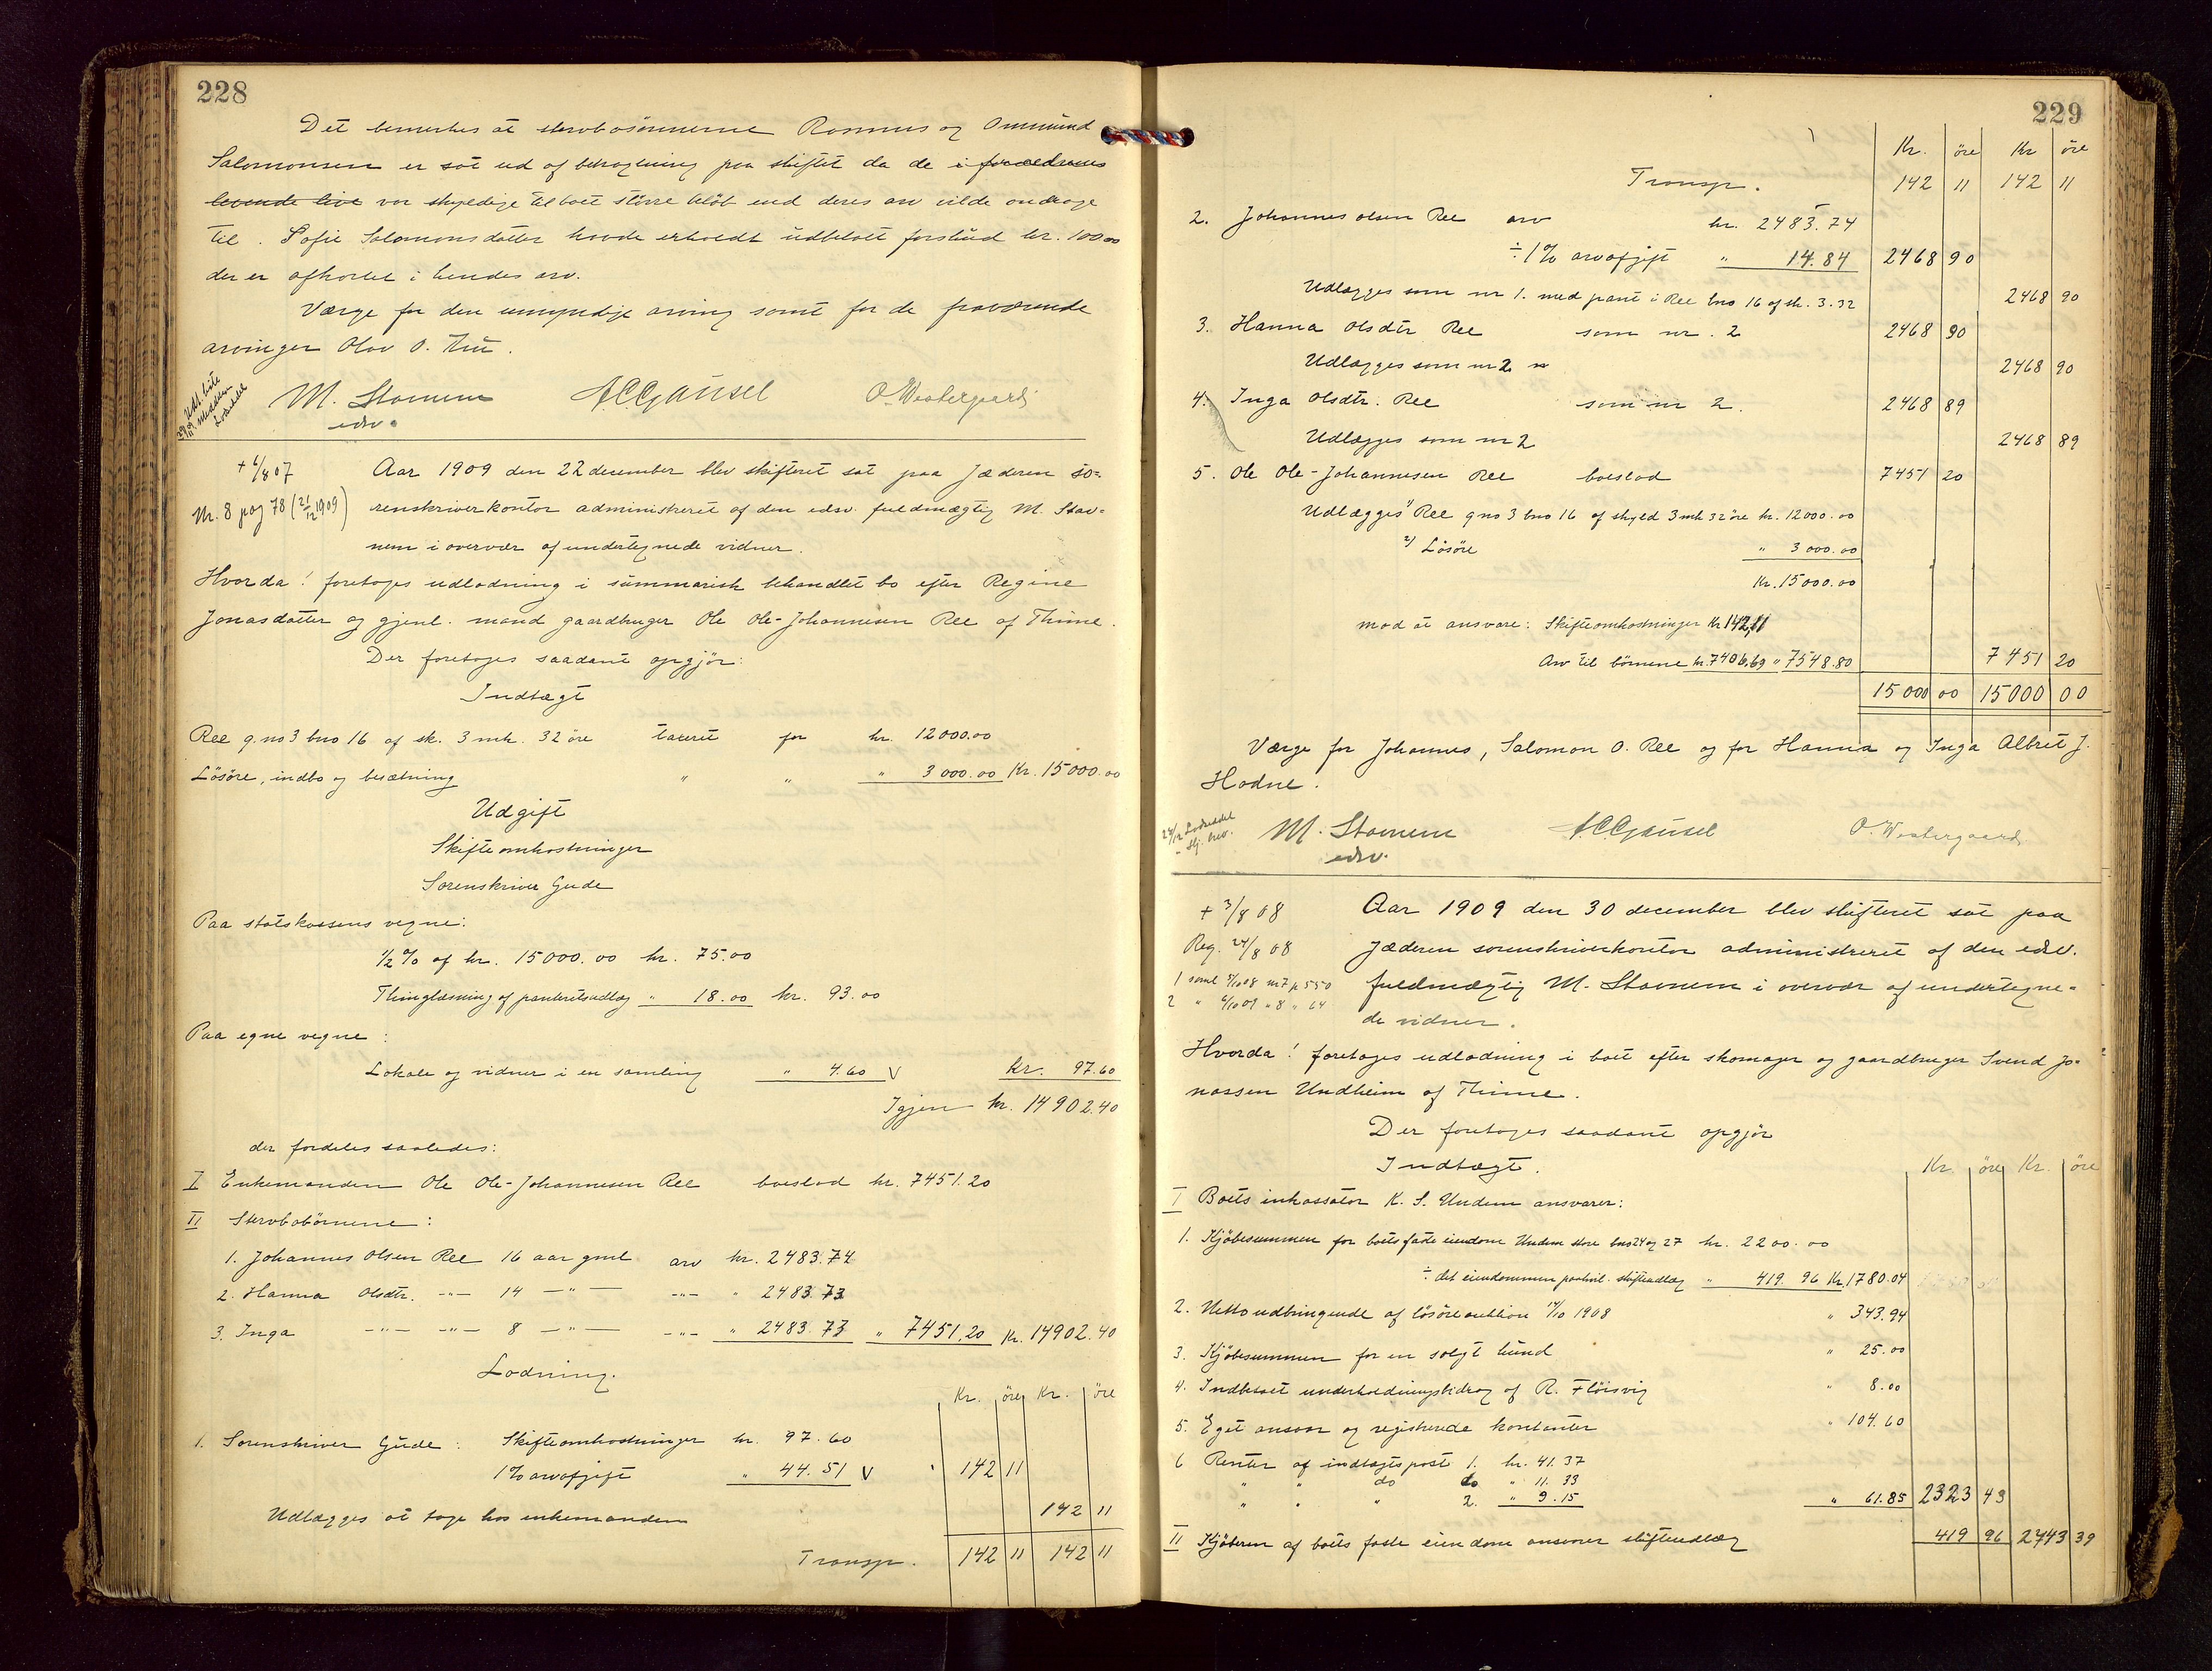 228
Det bemerkes at stervbosönnerne Rasmus og Ommund
Salomonsen er sat ud af betragtning paa skiftet da de i forældrenes
levende live var skyldige til boet större belöb end deres arv vilde andrage
til. Sofie Salomonsdatter havde erholdt udbetalt forskud kr. 100.00
der er afkortet i hendes arv.
Værge for den umyndige arving samt for de fraværende
arvinger Olav O. Tu.
M. Stavnem A.C. Gausel O. Westergaard
edsv.
+ 6/8 07 Aar 1909 den 22 december blev skifteret sat paa Jæderen so=
Nr. 8 pag 78 (21/12 1909) renskriverkontor administreret af den edsv. fuldmægtig M. Stav=
nem i overvær af undertegnede vidner.
Hvorda! foretoges udlodning i summarisk behandlet bo efter Regine
Jonasdatter og gjenl. mand gaardbruger Ole Ole-Johannesen Ree af Thime.
Der foretoges saadant opgjör:
Indtægt
Ree g.no 3 bno 16 af sk. 3 mk. 32 öre taxeret for kr. 12000.00
Lösöre, indbo og besætning " " " 3000.00 Kr. 15000.00
Udgift
Skifteomkostninger
Sorenskriver Gude
Paa statskassens vegne:
1/2 % af kr. 15000.00 kr. 75.00
Thinglæsning af panteretsudlæg " 18.00 kr. 93.00
Paa egne vegne:
Lokale og vidner i en samling " 4.60 V Kr. 97.60
Igjen kr. 14902.40
der fordeles saaledes:
I Enkemanden Ole Ole-Johannesen Ree boeslod kr. 7451.20
II Stervbobörnene:
1. Johannes Olsen Ree 16 aar gml. arv kr. 2483.74
2. Hanna Olsdtr. -"- 14 -"- -"- " 2483.73
3. Inga -"- -"- 8 -"- -"- " 2483.73 " 7451.20 Kr. 14902.40
Lodning.
Kr. öre Kr. öre
1. Sorenskriver Gude: Skifteomkostninger kr. 97.60
1% arvafgift " 44.51 V 142 11
Udlægges at tage hos enkemanden 142 11
Transp. 142 11 142 11
229
Kr. öre Kr öre
Transp. 142 11 142 11
2. Johannes Olsen Ree arv kr. 2483.74
÷ 1% arvafgift " 14.84 2468 90
Udlægges som nr 1. med pant i Ree bno 16 af sk. 3.32 2468 90
3. Hanna Olsdtr Ree som nr. 2 2468 90
Udlægges som nr 2 2468 90
4. Inga Olsdtr. Ree som nr 2. 2468 89
Udlægges som nr 2 2468 89
5. Ole Ole-Johannesen Ree boeslod 7451 20
Udlægges 1) Ree gno 3 bno 16 af skyld 3 mk 32 öre kr. 12000.00
2) Lösöre " 3000.00
Kr. 15000.00
mod at ansvare: Skifteomkostninger Kr 142,11
Arv til börnene kr. 7406,69 " 7548.80 7451 20
15000 00 15000 00
Værge for Johannes, Salomon O. Ree og for Hanna og Inga Albret J.
Hodne.
M. Stavnem A.C. Gausel O. Westergaard
edsv.
+ 3/8 08 Aar 1909 den 30 december blev skifteret sat paa
Reg. 24/8 08 Jæderen sorenskriverkontor administreret af den edsv.
1 saml 5/10 08 nr 7 p 550 fuldmægtig M. Stavnem i overvær af undertegne=
2 " 6/10 09 " 8 " 64
de vidner.
Hvorda! foretoges udlodning i boet efter skomager og gaardbruger Svend Jo=
nassen Undheim af Thime.
Der foretoges saadant opgjör
Indtægt.
Kr. öre Kr. öre
I Boets inkassator K. S. Undem ansvarer:
1. Kjöbesummen for boets faste eiendom Undem store bno 24 og 27 kr. 2200.00
÷ det eiendommen paahvil. skifteudlæg " 419.96 Kr. 1780.04
2. Nettoudbringende af lösöreauktion 14/10 1908 " 343.94
3. Kjöbesummen for en solgt hund " 25.00
4. Indbetalt underholdningsbidrag af R. Flöisvig " 8.00
5. Eget ansvar og registrerede kontanter " 104.60
6 Renter af indtægtspost 1. kr. 41.37
" " do do " 11.33
" " " 2. " 9.15 " 61.85 2323 43
II Kjöberen af boets faste eiendom ansvarer skifteudlæg 419 96 2743 39